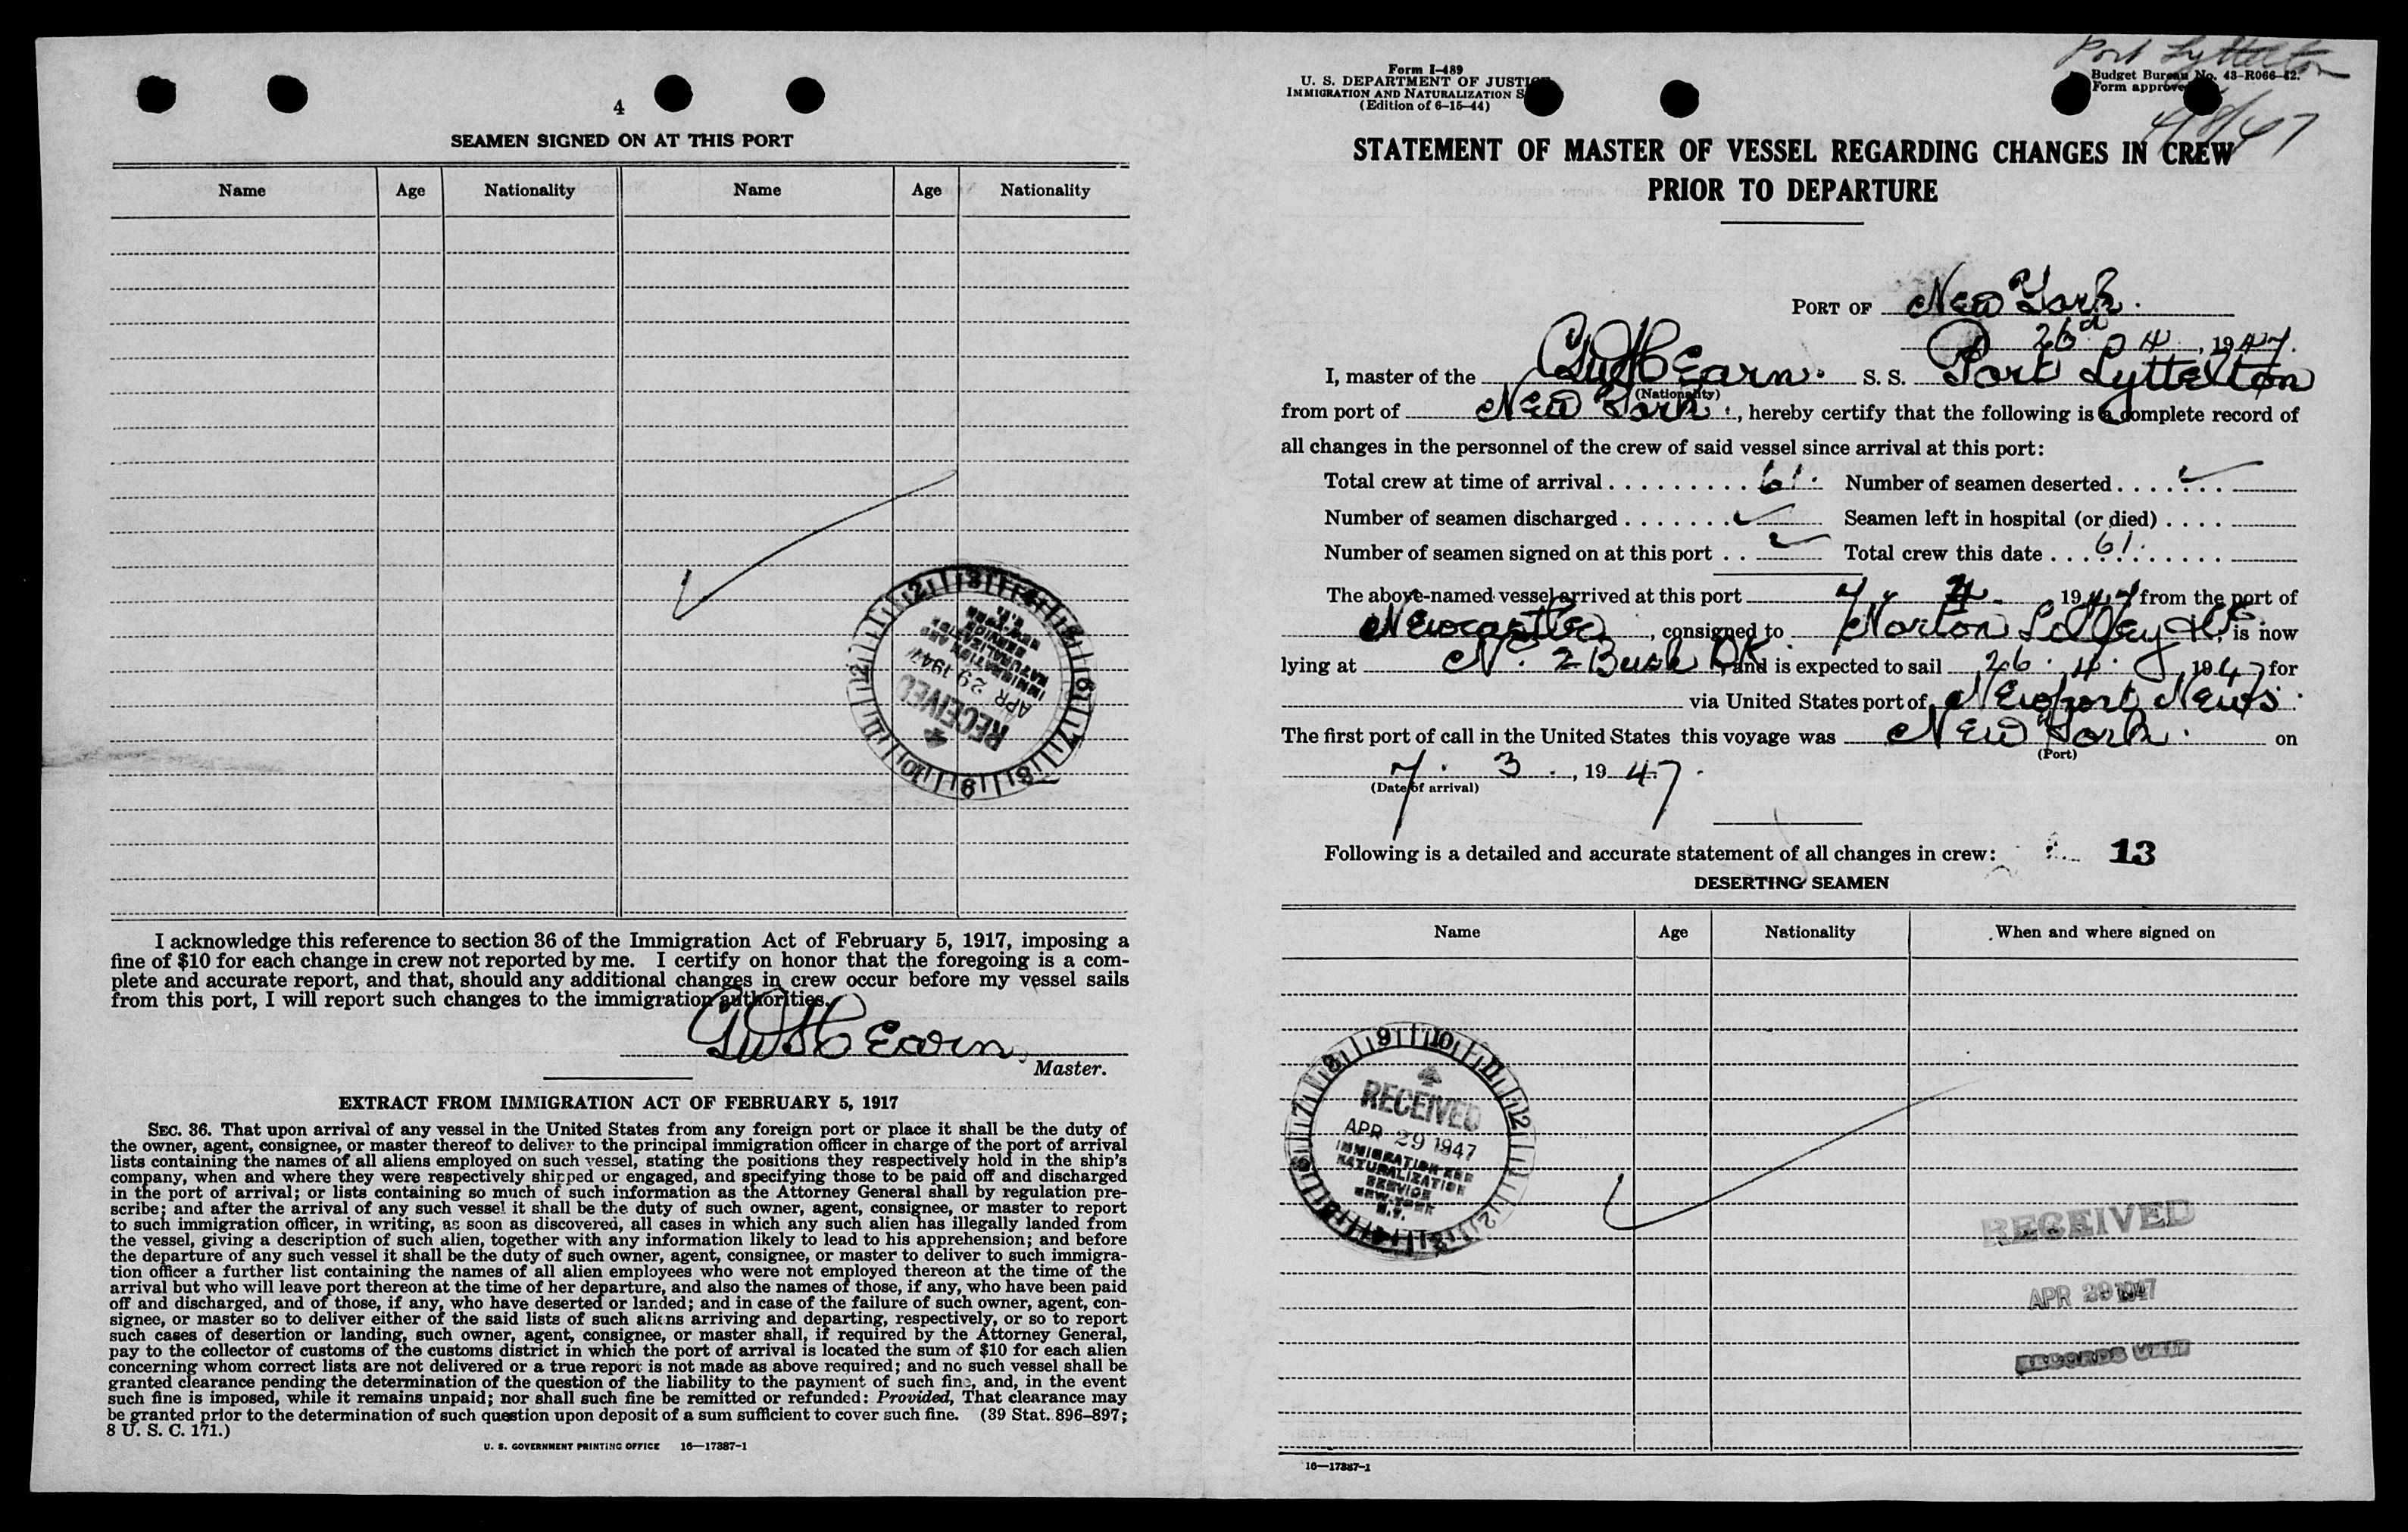 4
SEAMEN SIGNED ON AT THIS PORT
Name Age Nationality Name Age Nationality
RECEIVED
APR 29 1947
IMMIGRATION AND
NATURALIZATION
SERVICE
NEW YORK
N.Y.
I acknowledge this reference to section 36 of the Immigration Act of February 5, 1917, imposing a
fine of $10 for each change in crew not reported by me. I certify on honor that the foregoing is a com-
plete and accurate report, and that, should any additional changes in crew occur before my vessel sails
from this port, I will report such changes to the immigration authorities.
Master.
EXTRACT FROM IMMIGRATION ACT OF FEBRUARY 5, 1917
SEC. 36. That upon arrival of any vessel in the United States from any foreign port or place it shall be the duty of
the owner, agent, consignee, or master thereof to deliver to the principal immigration officer in charge of the port of arrival
lists containing the names of all aliens employed on such vessel, stating the positions they respectively hold in the ship's
company, when and where they were respectively shipped or engaged, and specifying those to be paid off and discharged
in the port of arrival; or lists containing so much of such information as the Attorney General shall by regulation pre-
scribe; and after the arrival of any such vessel it shall be the duty of such owner, agent, consignee, or master to report
to such immigration officer, in writing, as soon as discovered, all cases in which any such alien has illegally landed from
the vessel, giving a description of such alien, together with any information likely to lead to his apprehension; and before
the departure of any such vessel it shall be the duty of such owner, agent, consignee, or master to deliver to such immigra-
tion officer a further list containing the names of all alien employees who were not employed thereon at the time of the
arrival but who will leave port thereon at the time of her departure, and also the names of those, if any, who have been paid
off and discharged, and of those, if any, who have deserted or landed; and in case of the failure of such owner, agent, con-
signee, or master so to deliver either of the said lists of such aliens arriving and departing, respectively, or so to report
such cases of desertion or landing, such owner, agent, consignee, or master shall, if required by the Attorney General,
pay to the collector of customs of the customs district in which the port of arrival is located the sum of $10 for each alien
concerning whom correct lists are not delivered or a true report is not made as above required; and no such vessel shall be
granted clearance pending the determination of the question of the liability to the payment of such fine, and, in the event
such fine is imposed, while it remains unpaid; nor shall such fine be remitted or refunded: Provided, That clearance may
be granted prior to the determination of such question upon deposit of a sum sufficient to cover such fine. (39 Stat. 896–897;
8 U. S. C. 171.)
U. S. GOVERNMENT PRINTING OFFICE 16—17387-1
Port Lyttelton
Form I-489
U. S. DEPARTMENT OF JUSTICE
IMMIGRATION AND NATURALIZATION S
(Edition of 6-15-44)
Budget Bureau No. 43-R066-42.
Form approve
4/8/47
STATEMENT OF MASTER OF VESSEL REGARDING CHANGES IN CREW
PRIOR TO DEPARTURE
PORT OF New York.
26 4, 1947.
I, master of the Earn. S. S. Port Lyttelton
(Nationality)
from port of New York., hereby certify that the following is a complete record of
all changes in the personnel of the crew of said vessel since arrival at this port:
Total crew at time of arrival 61. Number of seamen deserted
Number of seamen discharged Seamen left in hospital (or died)
Number of seamen signed on at this port Total crew this date 61.
The above-named vessel arrived at this port 7. 4. 1947 from the port of
Newcastle, consigned to Norton Lilley & Co., is now
lying at No. 2 Bush Dk, and is expected to sail 26. 4. 1947 for
via United States port of Newport News.
The first port of call in the United States this voyage was New York. on
(Port)
7. 3., 1947.
(Date of arrival)
Following is a detailed and accurate statement of all changes in crew: 13
DESERTING SEAMEN
Name Age Nationality When and where signed on
RECEIVED
APR 29 1947
IMMIGRATION AND
NATURALIZATION
SERVICE
NEW YORK
N.Y.
RECEIVED
APR 29 1947
RECORDS UNIT
16—17387-1